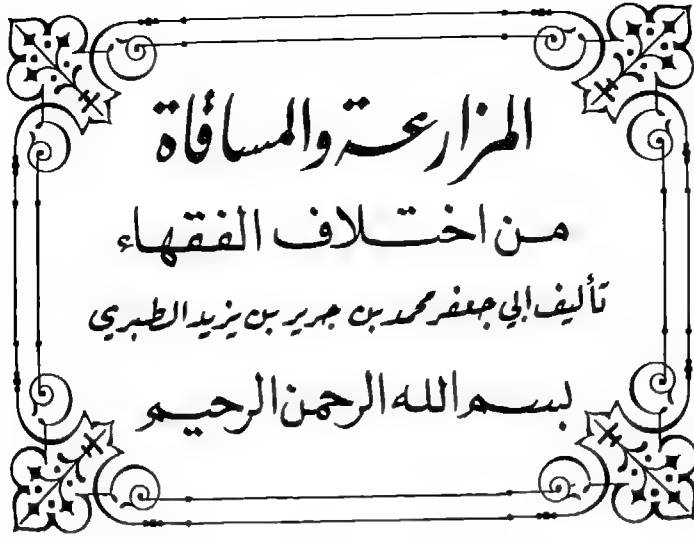 المزارعة والمساقاة
من اختلاف الفقهاء
تأليف ابي جعفر محمد بن جرير بن يزيد الطبري
بسم الله الرحمن الرحيم